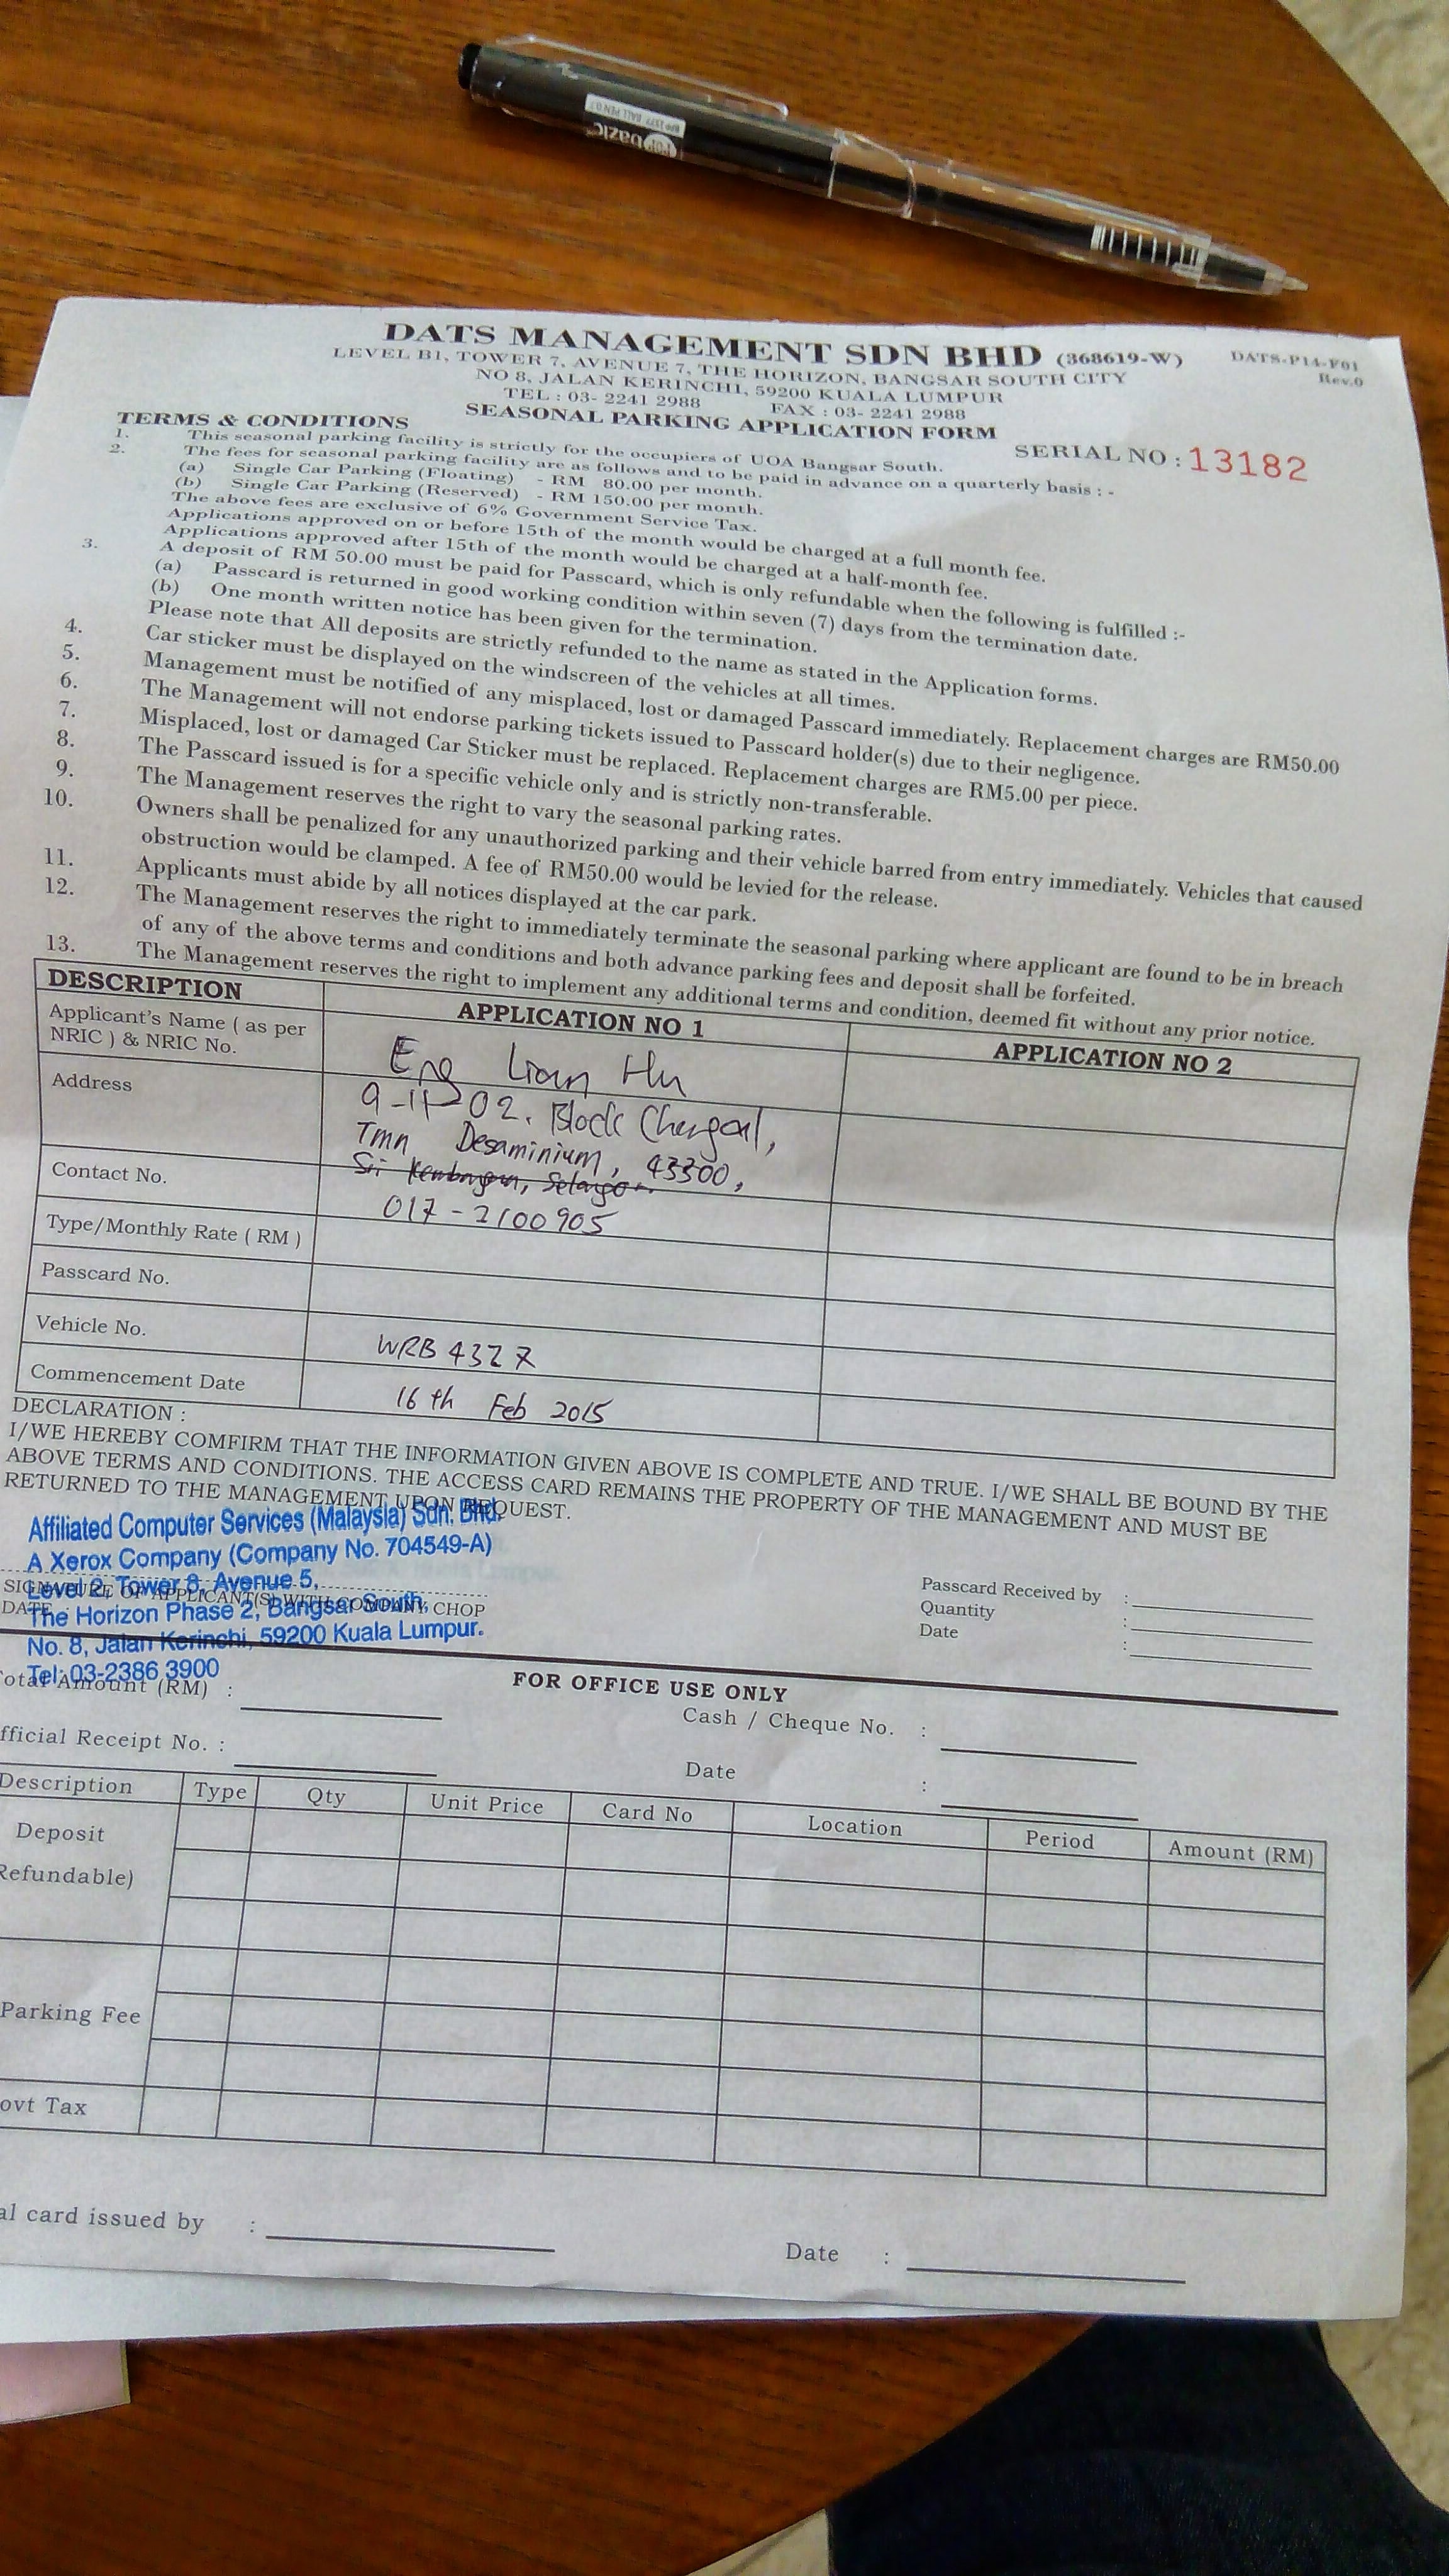 FOR bazic
BPP 1577 BALL PEN 0.7
DATS MANAGEMENT SDN BHD (368619-W)
DATS-P14-F01
Rev.0
LEVEL B1, TOWER 7, AVENUE 7, THE HORIZON, BANGSAR SOUTH CITY
NO 8, JALAN KERINCHI, 59200 KUALA LUMPUR
TEL : 03- 2241 2988 FAX : 03- 2241 2988
SEASONAL PARKING APPLICATION FORM
SERIAL NO : 13182
TERMS & CONDITIONS
1. This seasonal parking facility is strictly for the occupiers of UOA Bangsar South.
2. The fees for seasonal parking facility are as follows and to be paid in advance on a quarterly basis : -
(a) Single Car Parking (Floating) - RM 80.00 per month.
(b) Single Car Parking (Reserved) - RM 150.00 per month.
The above fees are exclusive of 6% Government Service Tax.
Applications approved on or before 15th of the month would be charged at a full month fee.
Applications approved after 15th of the month would be charged at a half-month fee.
3. A deposit of RM 50.00 must be paid for Passcard, which is only refundable when the following is fulfilled :-
(a) Passcard is returned in good working condition within seven (7) days from the termination date.
(b) One month written notice has been given for the termination.
Please note that All deposits are strictly refunded to the name as stated in the Application forms.
4. Car sticker must be displayed on the windscreen of the vehicles at all times.
5. Management must be notified of any misplaced, lost or damaged Passcard immediately. Replacement charges are RM50.00
6. The Management will not endorse parking tickets issued to Passcard holder(s) due to their negligence.
7. Misplaced, lost or damaged Car Sticker must be replaced. Replacement charges are RM5.00 per piece.
8. The Passcard issued is for a specific vehicle only and is strictly non-transferable.
9. The Management reserves the right to vary the seasonal parking rates.
10. Owners shall be penalized for any unauthorized parking and their vehicle barred from entry immediately. Vehicles that caused
obstruction would be clamped. A fee of RM50.00 would be levied for the release.
11. Applicants must abide by all notices displayed at the car park.
12. The Management reserves the right to immediately terminate the seasonal parking where applicant are found to be in breach
of any of the above terms and conditions and both advance parking fees and deposit shall be forfeited.
13. The Management reserves the right to implement any additional terms and condition, deemed fit without any prior notice.
DESCRIPTION APPLICATION NO 1 APPLICATION NO 2
Applicant's Name ( as per
NRIC ) & NRIC No.
Eng Lian Hu
Address
9-11-02, Block Chengal,
Tmn Desaminium, 43300,
Sri Kembangan, Selangor.
Contact No.
017-2100905
Type/Monthly Rate ( RM )
Passcard No.
Vehicle No.
WRB 4327
Commencement Date
16th Feb 2015
DECLARATION :
I/WE HEREBY COMFIRM THAT THE INFORMATION GIVEN ABOVE IS COMPLETE AND TRUE. I/WE SHALL BE BOUND BY THE
ABOVE TERMS AND CONDITIONS. THE ACCESS CARD REMAINS THE PROPERTY OF THE MANAGEMENT AND MUST BE
RETURNED TO THE MANAGEMENT UPON REQUEST.
Affiliated Computer Services (Malaysia) Sdn. Bhd.
A Xerox Company (Company No. 704549-A)
Level 2, Tower 8, Avenue 5,
The Horizon Phase 2, Bangsar South,
No. 8, Jalan Kerinchi, 59200 Kuala Lumpur.
Tel: 03-2386 3900
SIGNATURE OF APPLICANT(S) WITH COMPANY CHOP
DATE :
Passcard Received by :
Quantity :
Date :
FOR OFFICE USE ONLY
otal Amount (RM) :
Cash / Cheque No. :
fficial Receipt No. :
Date :
Description Type Qty Unit Price Card No Location Period Amount (RM)
Deposit
Refundable)
Parking Fee
ovt Tax
al card issued by :
Date :